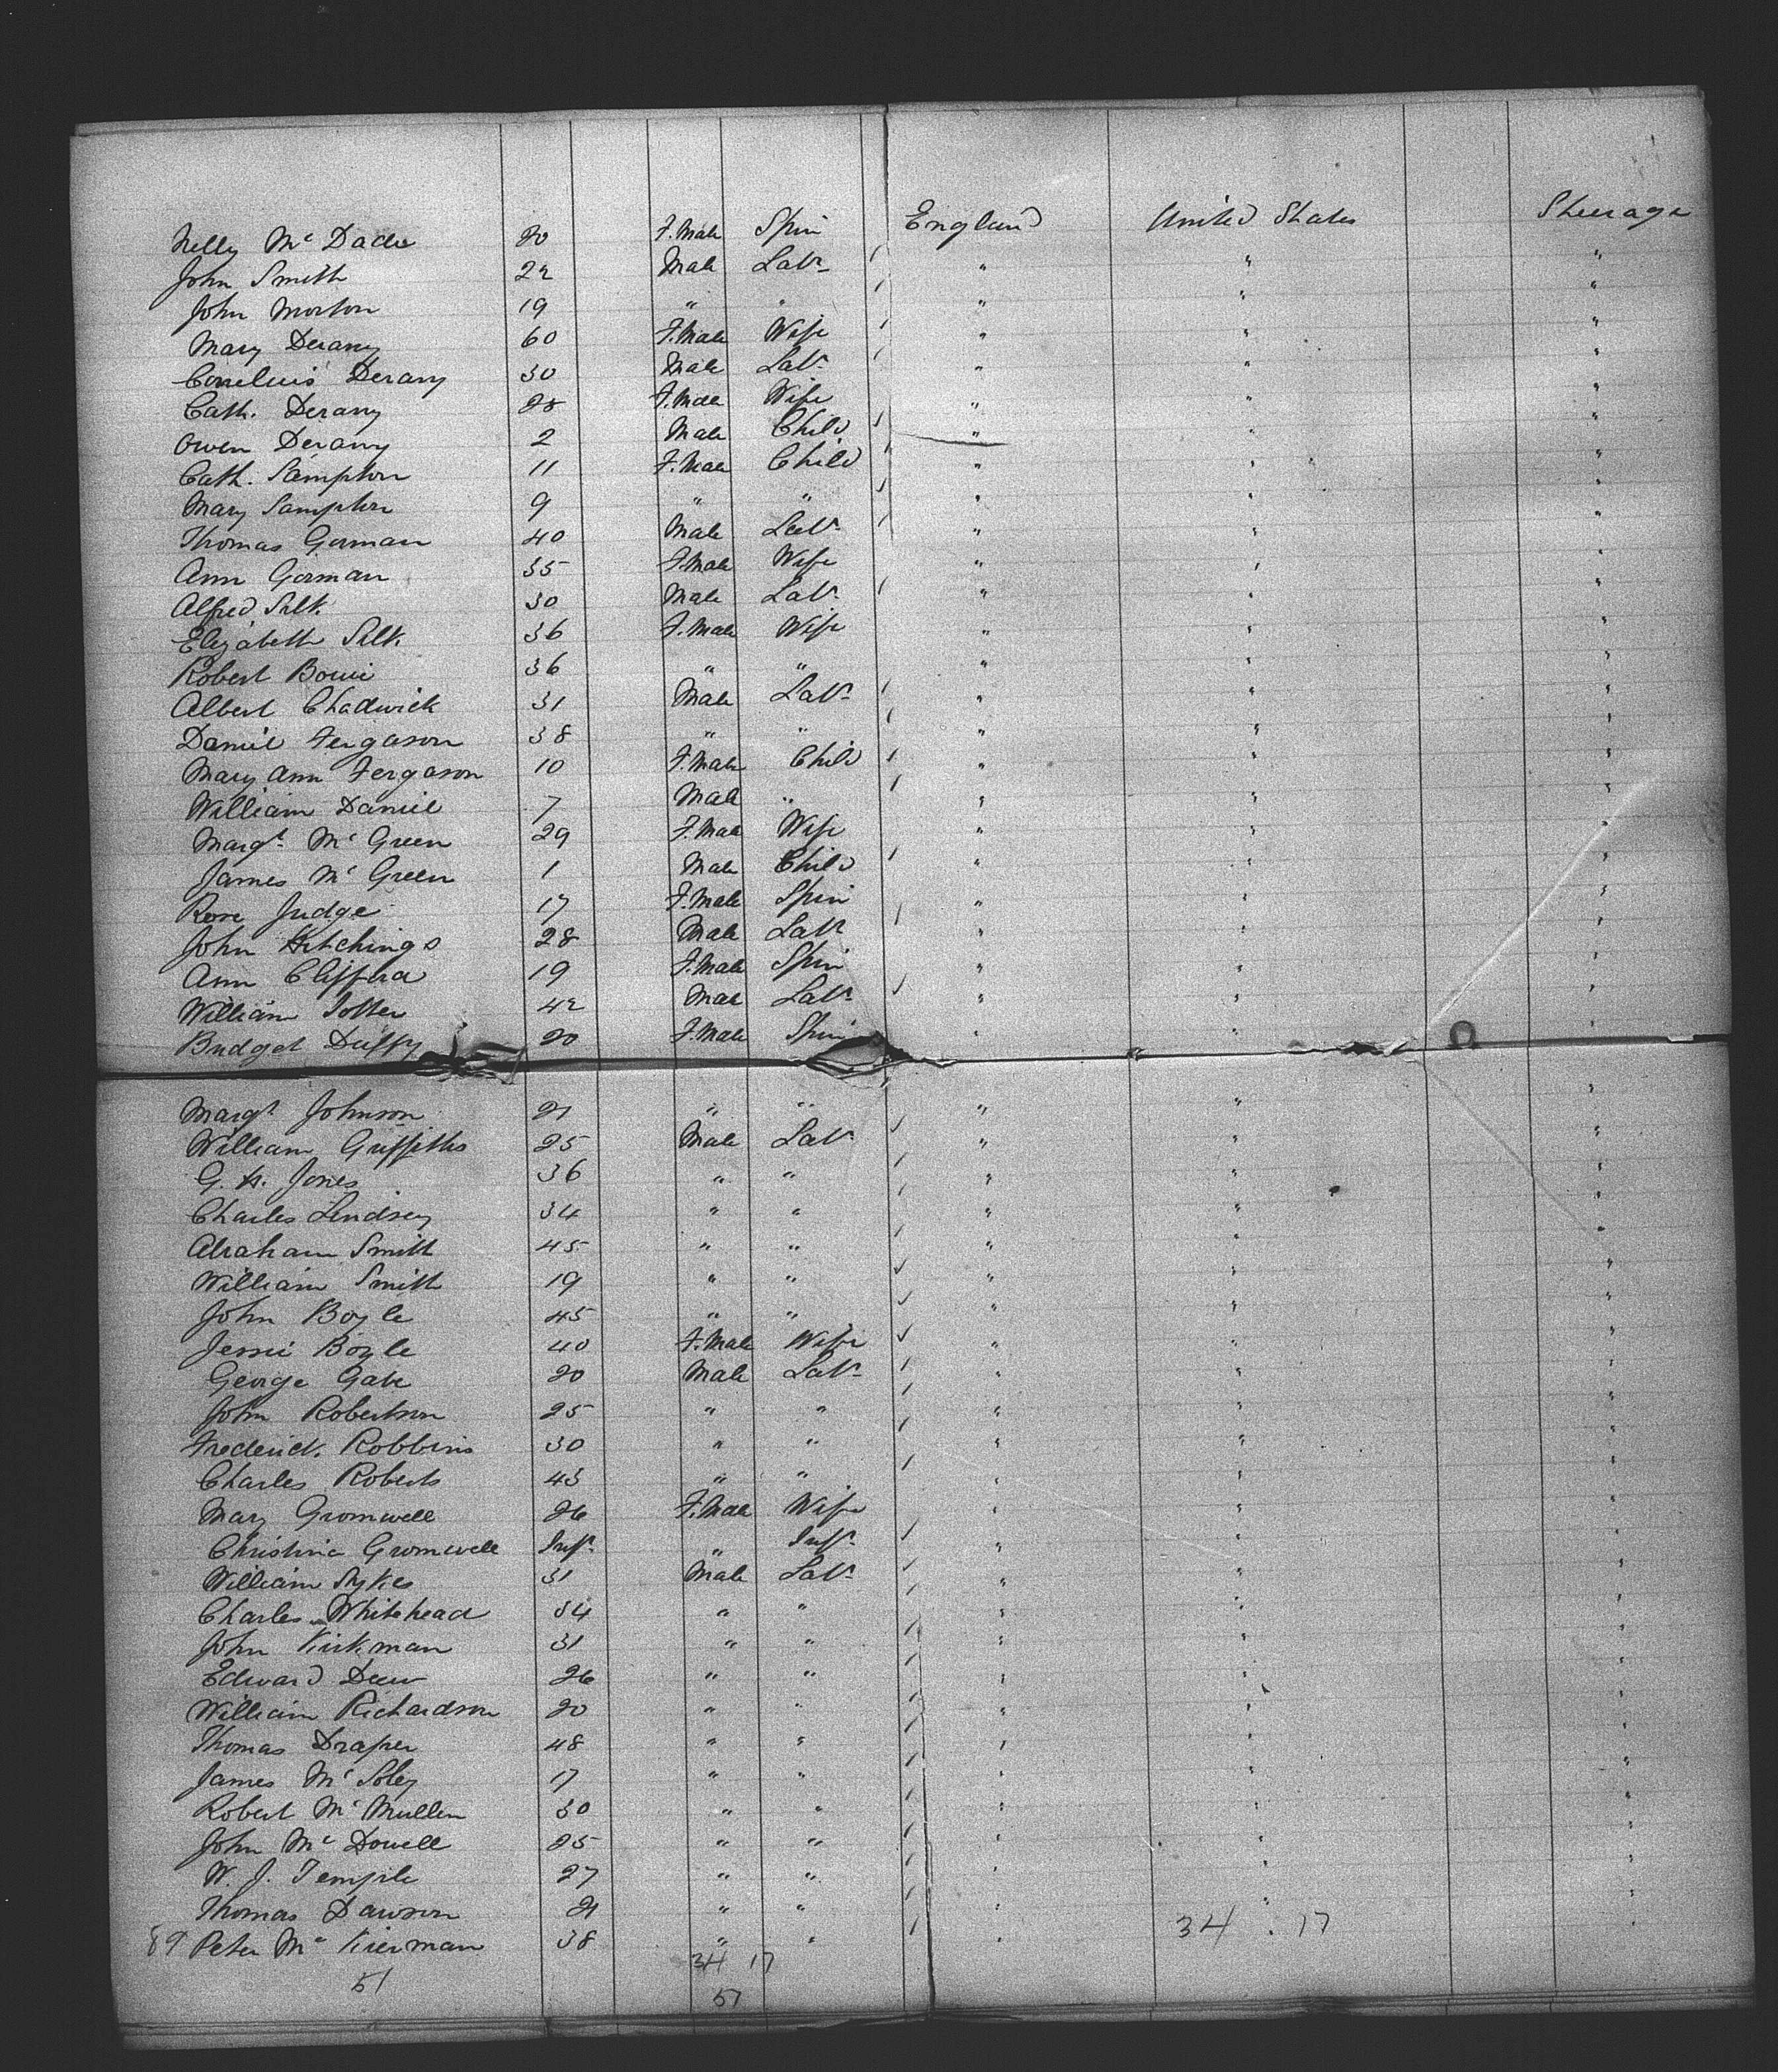 Nelly Mc Dade 20 F.Male Spin England United States Steerage
John Smith 22 Male Labr " " "
John Morton 19 " " " " "
Mary Derany 60 F.Male Wife " " "
Cornelius Derany 30 Male Labr " " "
Cath. Derany 28 F.Male Wife " " "
Owen Derany 2 Male Child " " "
Cath. Sampton 11 F.Male Child " " "
Mary Sampton 9 " " " " "
Thomas Gorman 40 Male Labr " " "
Ann Gorman 35 F.Male Wife " " "
Alfred Silk 30 Male Labr " " "
Elizabeth Silk 36 F.Male Wife " " "
Robert Bowie 36 " " " " "
Albert Chadwick 31 Male Labr " " "
Daniel Fergason 38 " " " " "
Mary Ann Fergason 10 F.Male Child " " "
William Daniel 7 Male " " " "
Margt. Mc Green 29 F.Male Wife " " "
James Mc Green 1 Male Child " " "
Rose Judge 17 F.Male Spin " " "
John Hitchings 28 Male Labr " " "
Ann 19 F.Male Spin " " "
William 42 Male Labr " " "
Bridget Duffy 20 F.Male Spin " " "
Margt. Johnson 21 " " " " "
William Griffiths 25 Male Labr " " "
G. H. Jones 36 " " " " "
Charles Lindsey 34 " " " " "
Abraham Smith 45 " " " " "
William Smith 19 " " " " "
John Boyle 45 " " " " "
Jessie Boyle 40 F.Male Wife " " "
George Gabe 20 Male Labr " " "
John Robertson 25 " " " " "
Frederick Robbins 30 " " " " "
Charles Roberts 43 " " " " "
Mary Gromwell 26 F.Male Wife " " "
Christina Gromwell Inft. " Inft. " " "
William Sykes 31 Male Labr " " "
Charles Whitehead 34 " " " " "
John Kirkman 31 " " " " "
Edward Dew 26 " " " " "
William Richardson 20 " " " " "
Thomas Draper 48 " " " " "
James Mc Soley 17 " " " " "
Robert Mc Mullen 30 " " " " "
John Mc Dowell 25 " " " " "
W. J. Temple 27 " " " " "
Thomas Dawson 21 " " " " "
89 Peter Mc Kierman 38 " " " 34 . 17 "
51 34 17
51